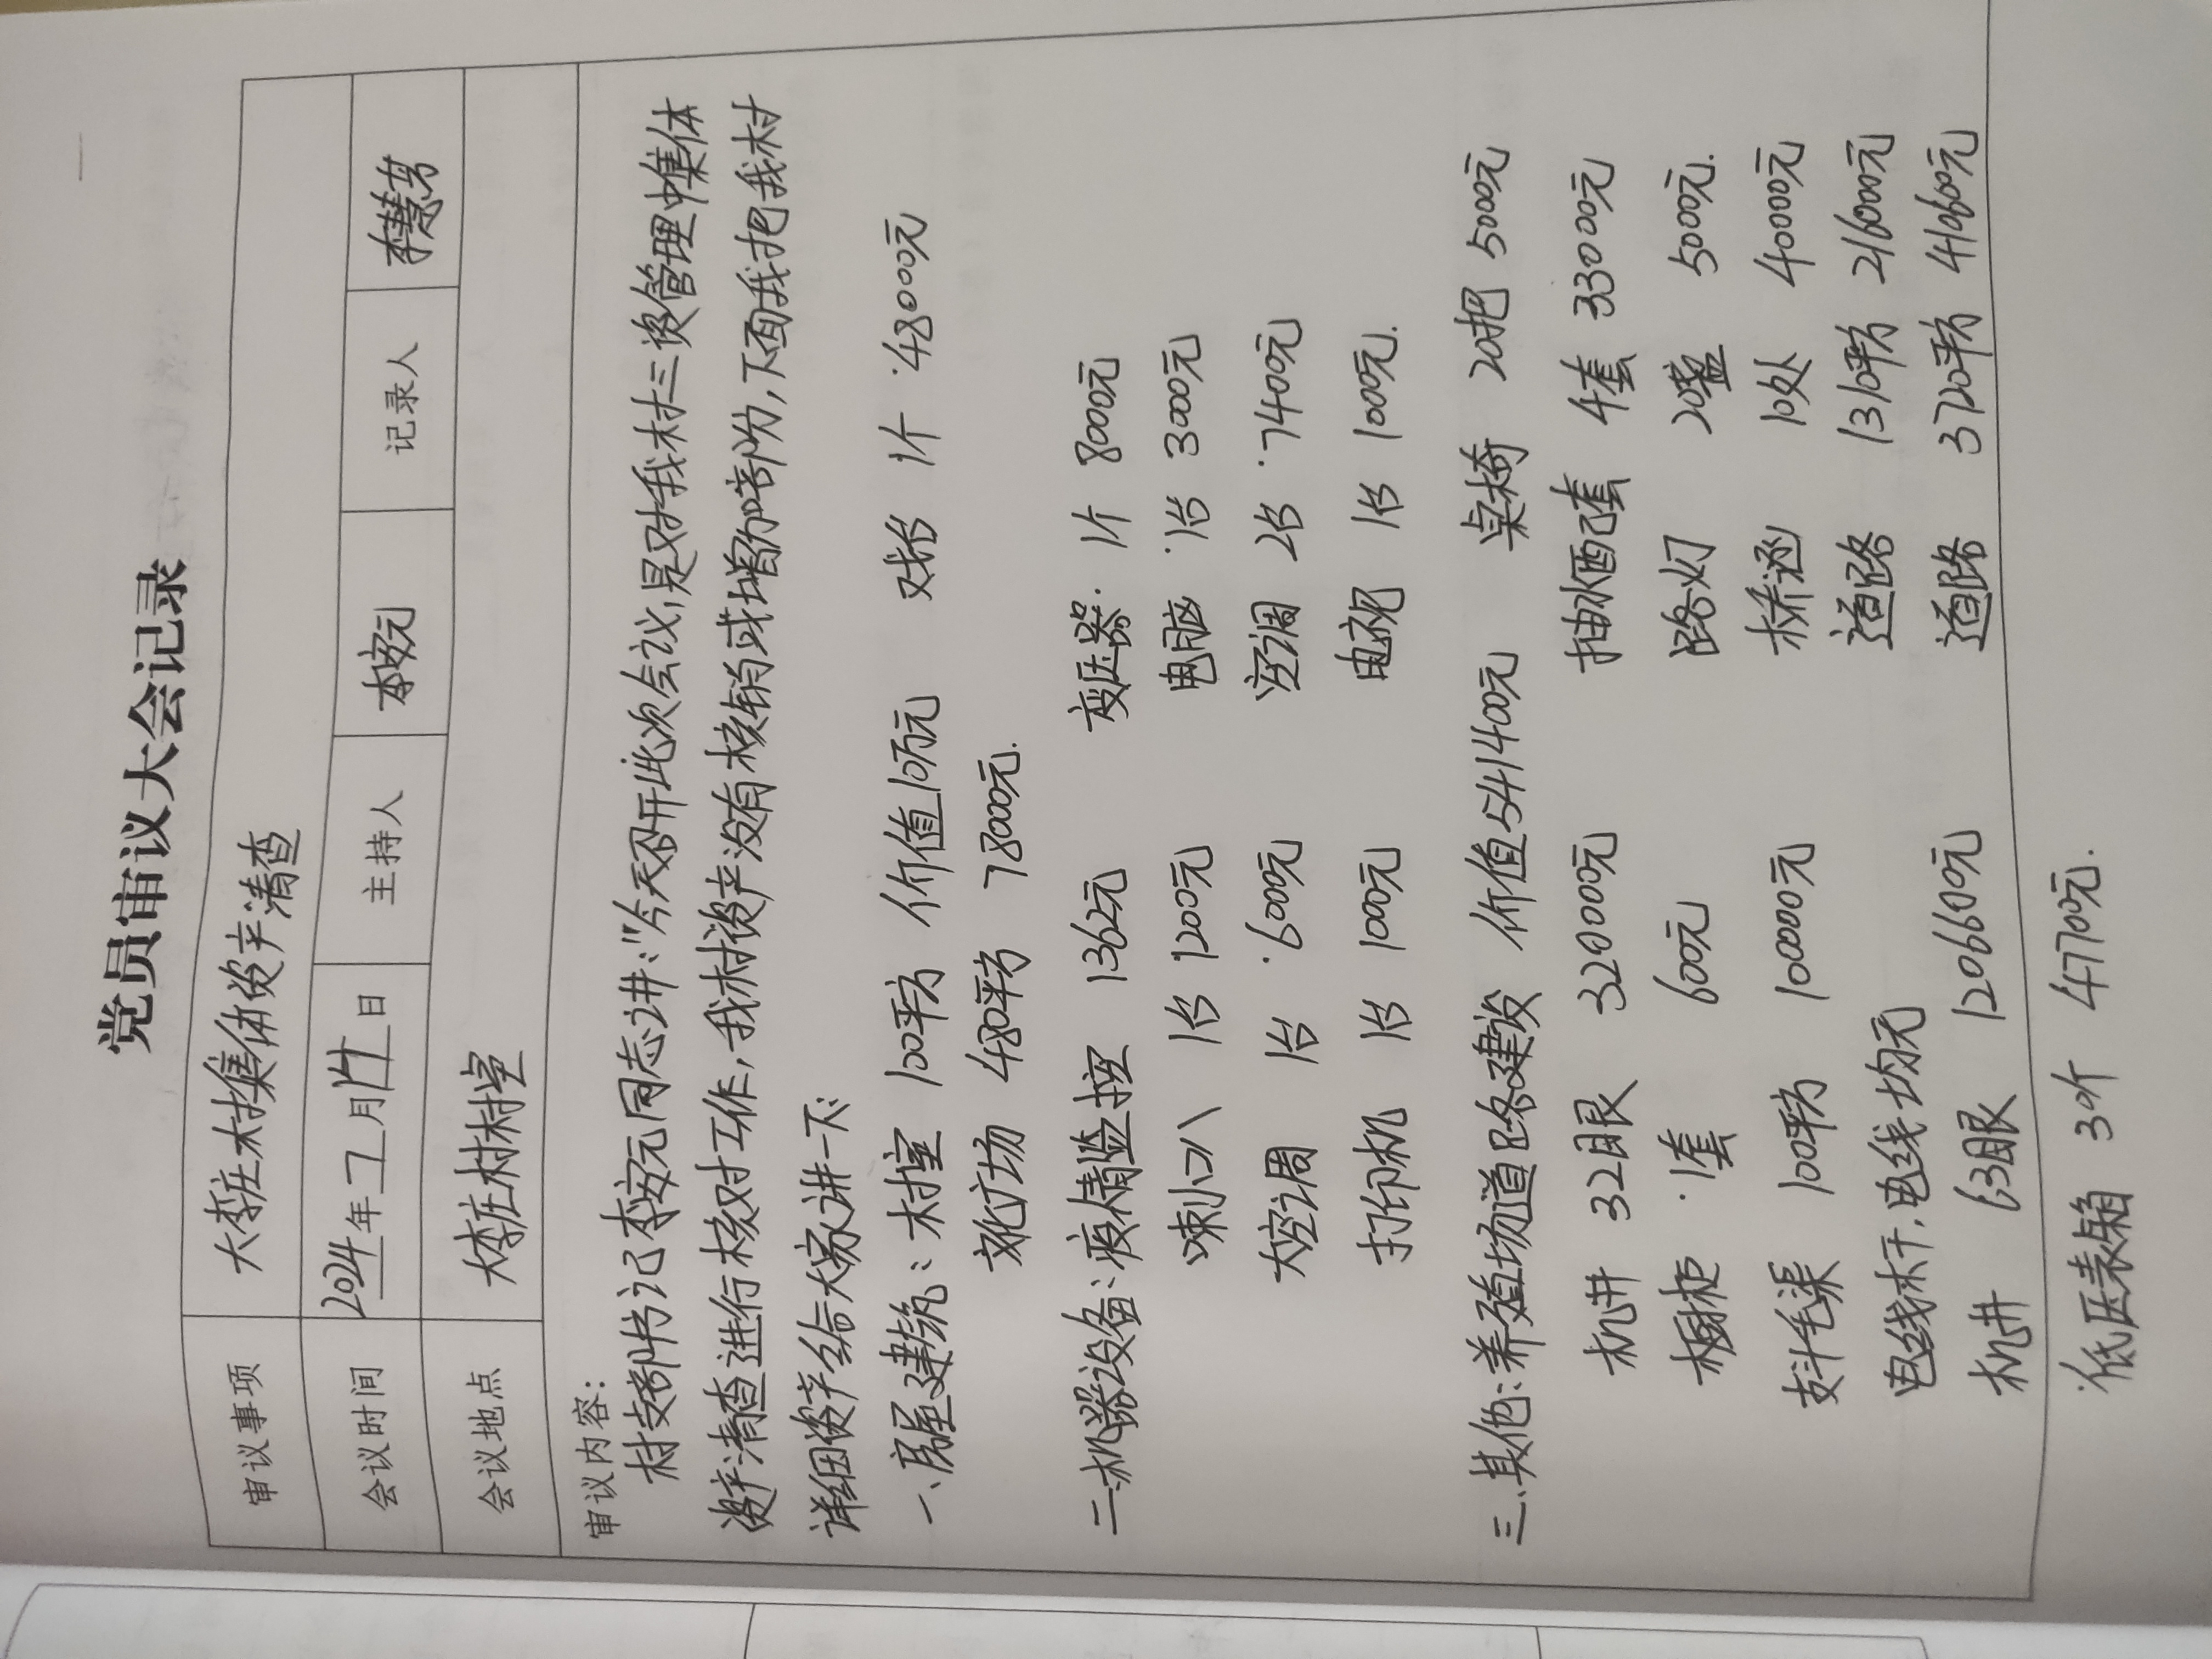 党员审议大会记录
审议事项 大李庄村集体资产清查
会议时间 2024年7月14日 主持人 李安元 记录人 李慧芳
会议地点 大李庄村村室
审议内容:
村支部书记李安元同志讲:"今天召开此次会议,是对我村三资管理中集体
资产清查进行核对工作,我村资产没有核销或增加部分,下面我把我村
详细资产给大家讲一下:
一、房屋建筑:村室 100平方 价值10万元 戏台 1个 48000元
文化广场 480平方 78000元.
二、机器设备:疫情监控 1362元 变压器 1个 8000元
喇叭 1台 1200元 电脑 1台 3000元
大空调 1台 6000元 空调 2台 7400元
打印机 1台 1000元 电视 1台 1000元.
三、其他:养殖场道路建设 价值541400元 桌椅 20把 5000元
机井 32眼 320000元 抽水配套 4套 33000元
橱柜 1套 600元 路灯 20盏 5000元.
支斗毛渠 100平方 100000元 桥涵 10处 40000元
电线杆,电线均无 道路 1310平方 216000元
机井 63眼 1206600元 道路 3720平方 410600元
低压表箱 30个 47700元.